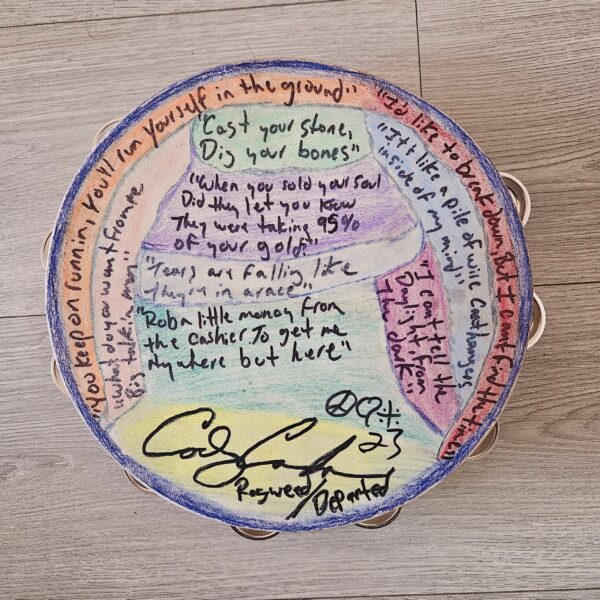 "You keep on runnin, you'll run yourself in the ground"
"I'd like to break down, But I cant find the time"
"Cast your stone,
Dig your bones"
"It's like a pile of wire Coat hangers
inside of my mind"
"What do you want from me
Big talkin man"
"When you sold your soul
Did they let you know
They were taking 95%
of your gold?"
"Tears are falling like
They're in a race"
"I cant tell the
Daylight from
The dark"
"Rob a little money from
the cashier To get me
Anywhere but here"
23
Cody Canada
Ragweed/Departed